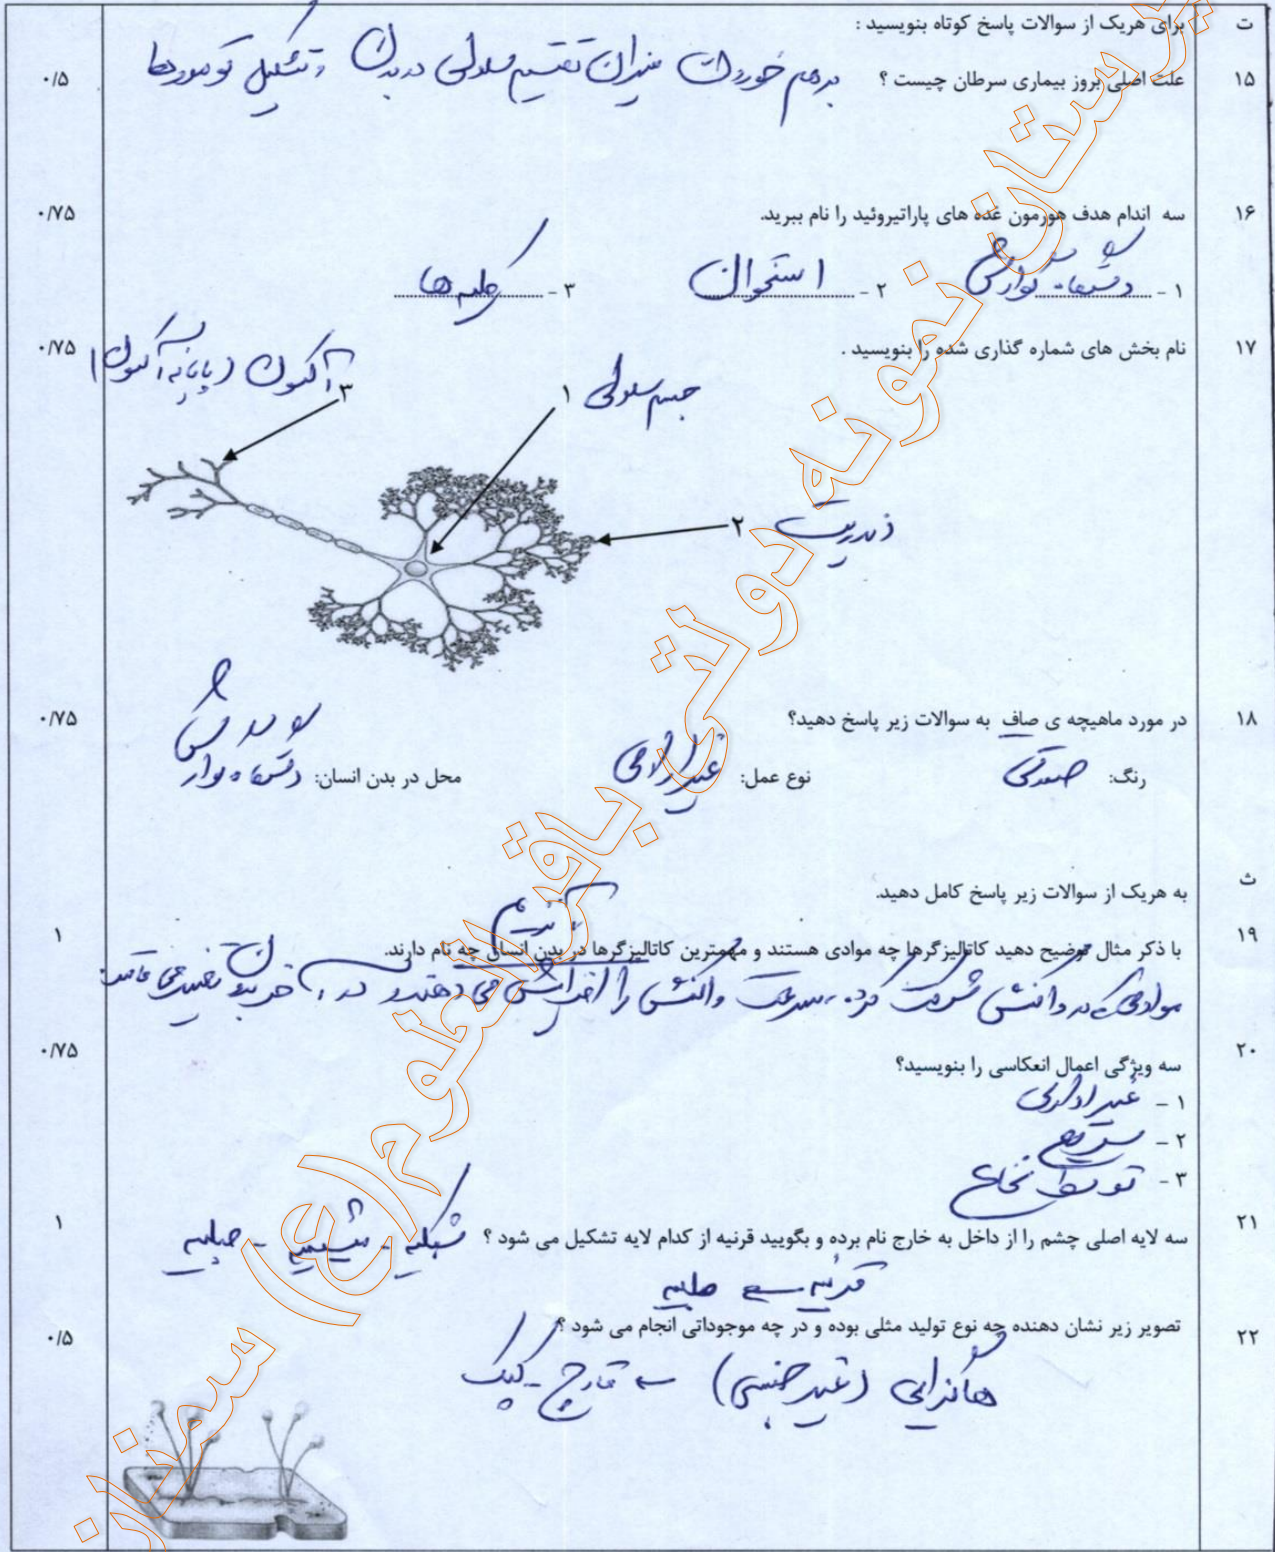 ت برای هریک از سوالات پاسخ کوتاه بنویسید :
۱۵ علت اصلی بروز بیماری سرطان چیست ؟ برهم خوردن میزان تقسیم سلولی در بدن و تشکیل تومورها ۰/۵
۱۶ سه اندام هدف هورمون غده های پاراتیروئید را نام ببرید. ۰/۷۵
۱ - دستگاه گوارش ۲ - استخوان ۳ - کلیه ها
۱۷ نام بخش های شماره گذاری شده را بنویسید . ۰/۷۵
۳ آکسون (پایانه آکسون)
۱ جسم سلولی
۲ دندریت
۱۸ در مورد ماهیچه ی صاف به سوالات زیر پاسخ دهید؟ ۰/۷۵
رنگ: صورتی نوع عمل: غیرارادی محل در بدن انسان: دستگاه گوارش
ث به هریک از سوالات زیر پاسخ کامل دهید.
آنزیم
۱۹ با ذکر مثال توضیح دهید کاتالیزگرها چه موادی هستند و مهمترین کاتالیزگرها در بدن انسان چه نام دارند. ۱
موادی که در واکنش شرکت کرده، سرعت واکنش را افزایش می دهند و در آخر بدون تغییر می مانند.
۲۰ سه ویژگی اعمال انعکاسی را بنویسید؟ ۰/۷۵
۱ - غیر ارادی
۲ - سریع
۳ - توسط نخاع
۲۱ سه لایه اصلی چشم را از داخل به خارج نام برده و بگویید قرنیه از کدام لایه تشکیل می شود ؟ شبکیه - مشیمیه - صلبیه ۱
قرنیه صلبیه
۲۲ تصویر زیر نشان دهنده چه نوع تولید مثلی بوده و در چه موجوداتی انجام می شود ؟ ۰/۵
هاگزایی (غیرجنسی) قارچ - کپک
دبیرستان نمونه دولتی باقرالعلوم(ع) سمنان